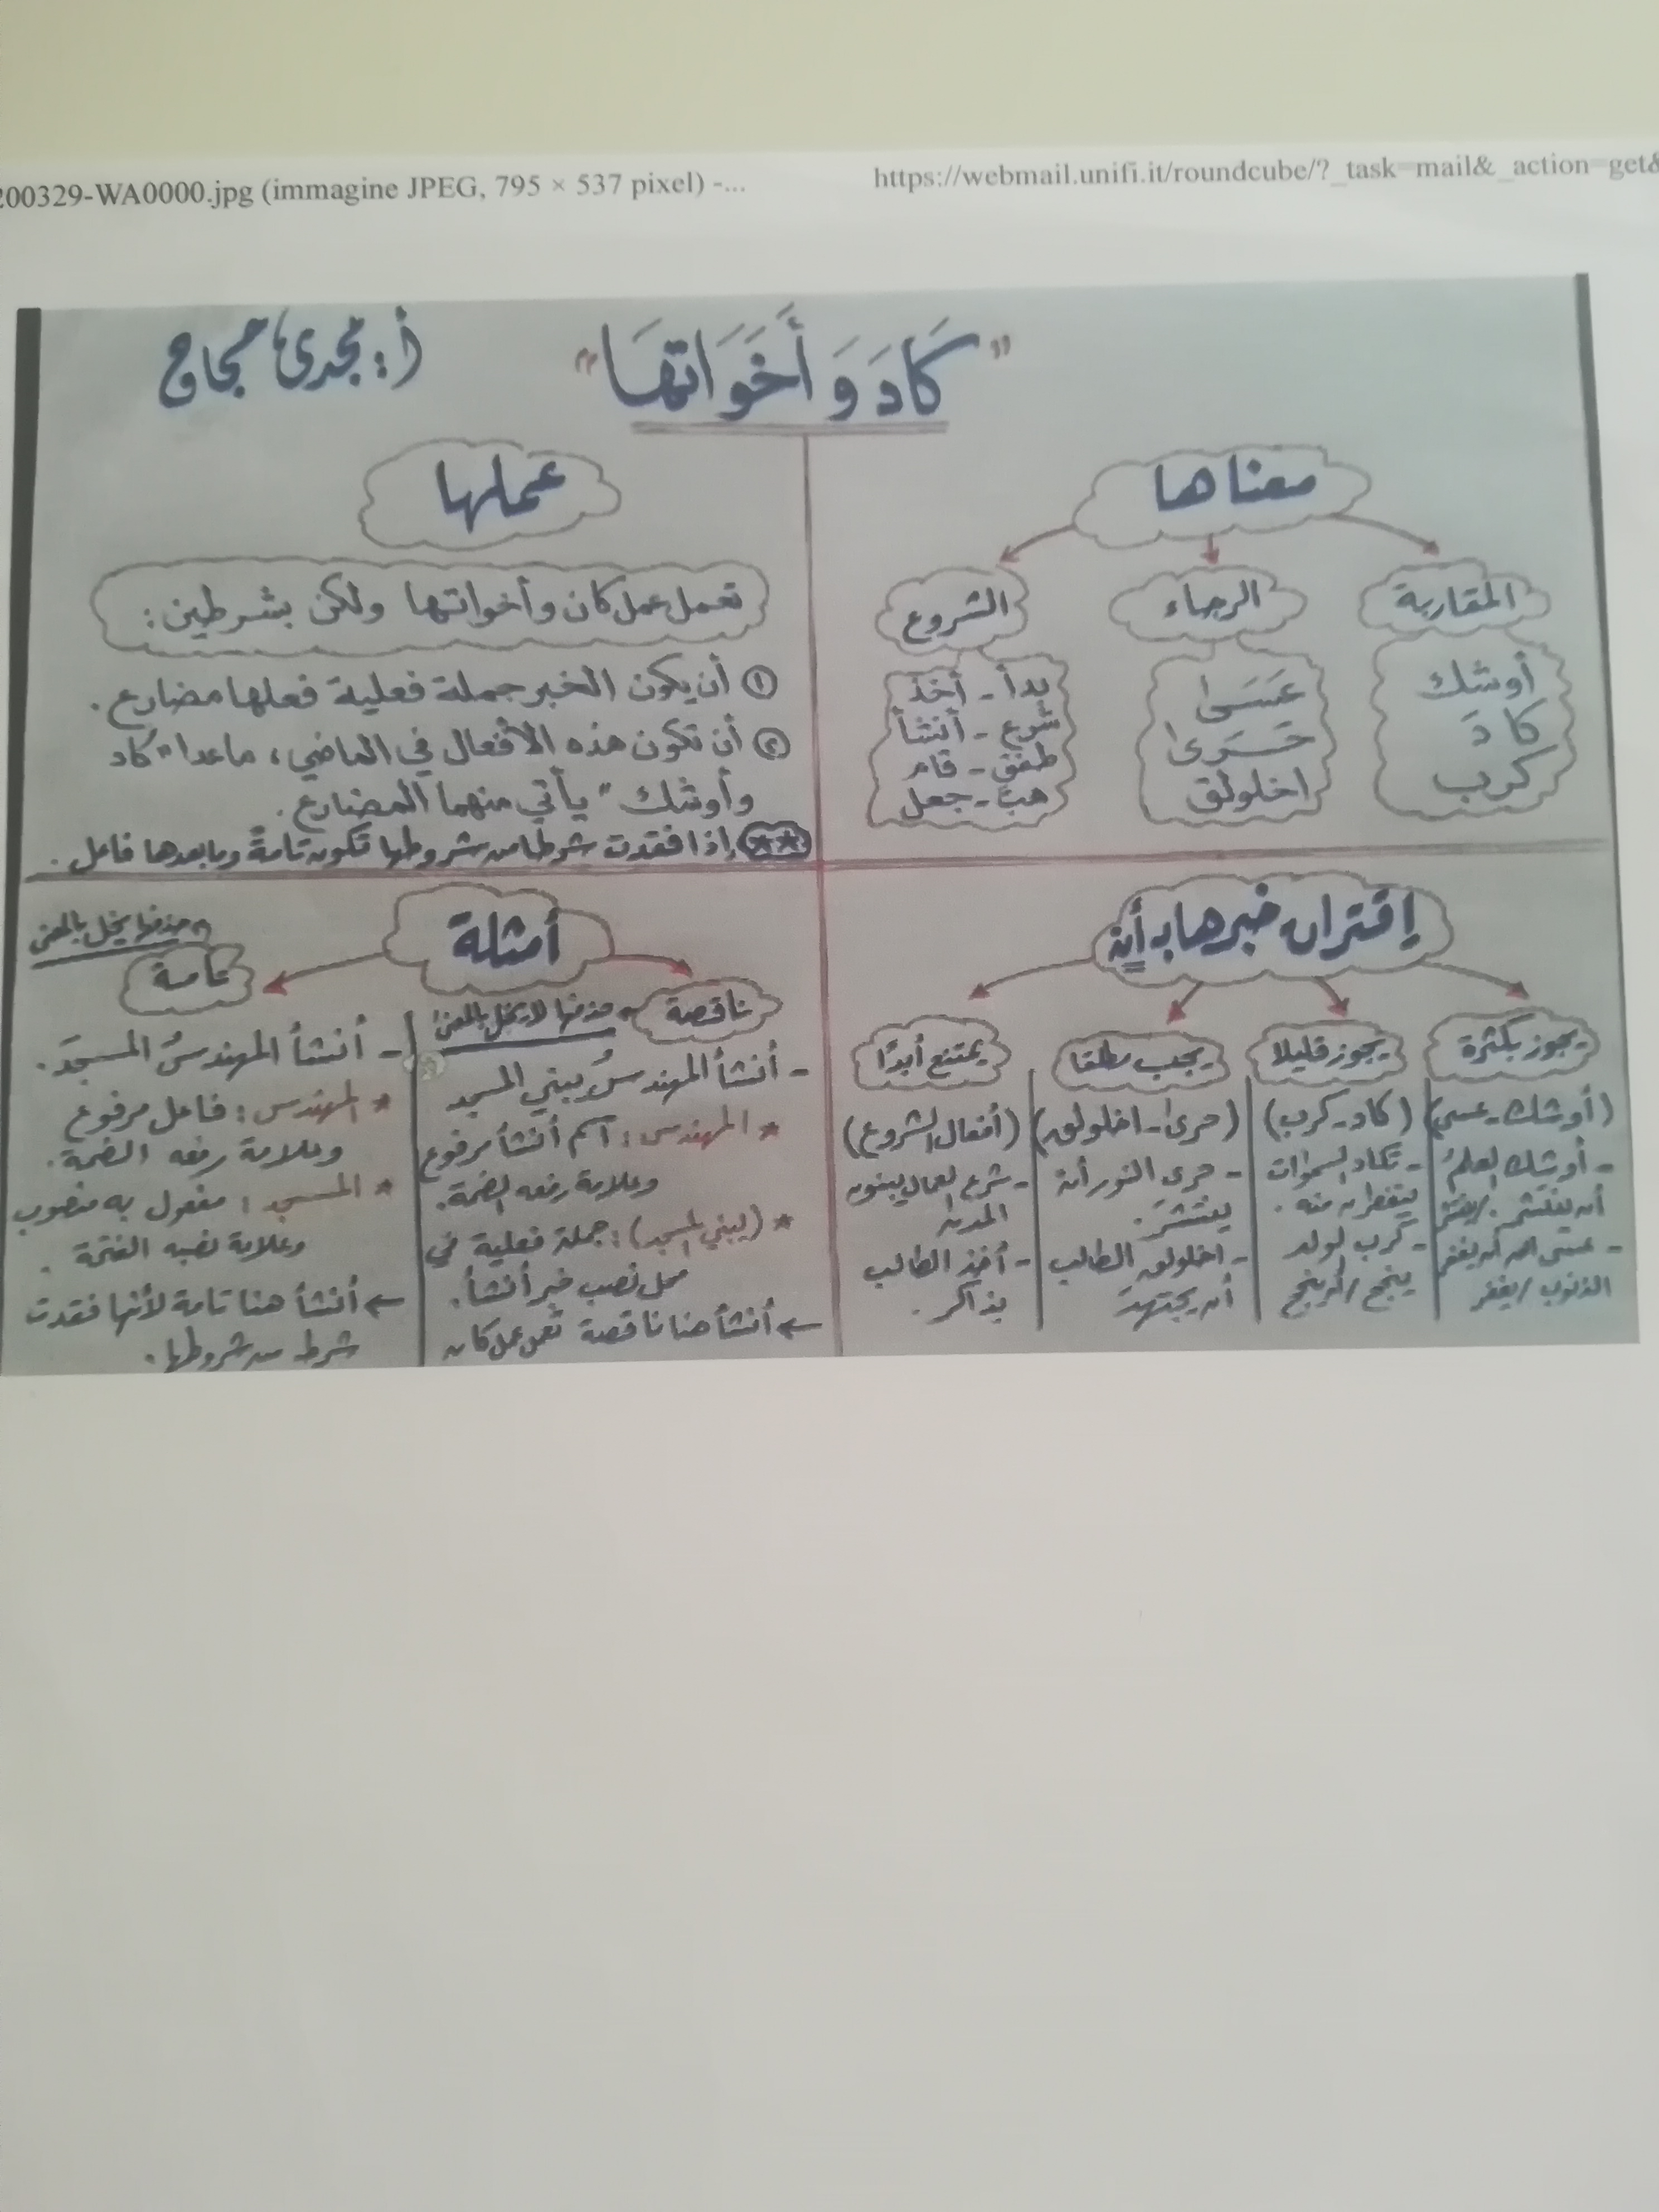 200329-WA0000.jpg (immagine JPEG, 795 × 537 pixel) -...
https://webmail.unifi.it/roundcube/?_task=mail&_action=get&
"كَادَ وَ أَخَوَاتهَا"
أ: مجدى حجاج
معناها
المقاربة
أوشك
كادَ
كرب
الرجاء
عَسَى
حَرَى
اخلولق
الشروع
بدأ - أخذ
شرع - أنشأ
طفق - قام
هبَّ - جعل
عملها
تعمل عمل كان وأخواتها ولكن بشرطين:
① أن يكون الخبر جملة فعلية فعلها مضارع.
② أن تكون هذه الأفعال في الماضي، ماعدا "كاد
وأوشك" يأتي منهما المضارع.
** إذا فقدت شرطا من شروطها تكون تامةً وما بعدها فاعل.
إقتران خبرها بـ أن
يجوز بكثرة
(أوشك - عسى)
- أوشك العلمُ
أن ينتشر. / ينتشر
- عسى الله أن يغفر
الذنوب / يغفر
يجوز قليلا
(كاد - كرب)
- تكاد السموات
يتفطرن منه.
- كرب الولد
ينجح / أن ينجح
يجب مطلقا
(حرى - اخلولق)
- حرى النور أن
ينتشرَ.
- اخلولق الطالب
أن يجتهدَ
يمتنع أبدًا
(أفعال الشروع)
- شرع العمال يبنون
المدن
- أخذ الطالب
يذاكر.
أمثلة
ناقصة
حذفها لا يخل بالمعنى
- أنشأ المهندسُ يبني المسجد
* المهندس: اسم أنشأ مرفوع
وعلامة رفعه الضمة.
* (يبني المسجد): جملة فعلية في
محل نصب خبر أنشأ.
← أنشأ هنا ناقصة تعمل عمل كان
تامة
حذفها يخل بالمعنى
- أنشأ المهندسُ المسجدَ.
* المهندس: فاعل مرفوع
وعلامة رفعه الضمة.
* المسجد: مفعول به منصوب
وعلامة نصبه الفتحة.
← أنشأ هنا تامة لأنها فقدت
شرط من شروطها.